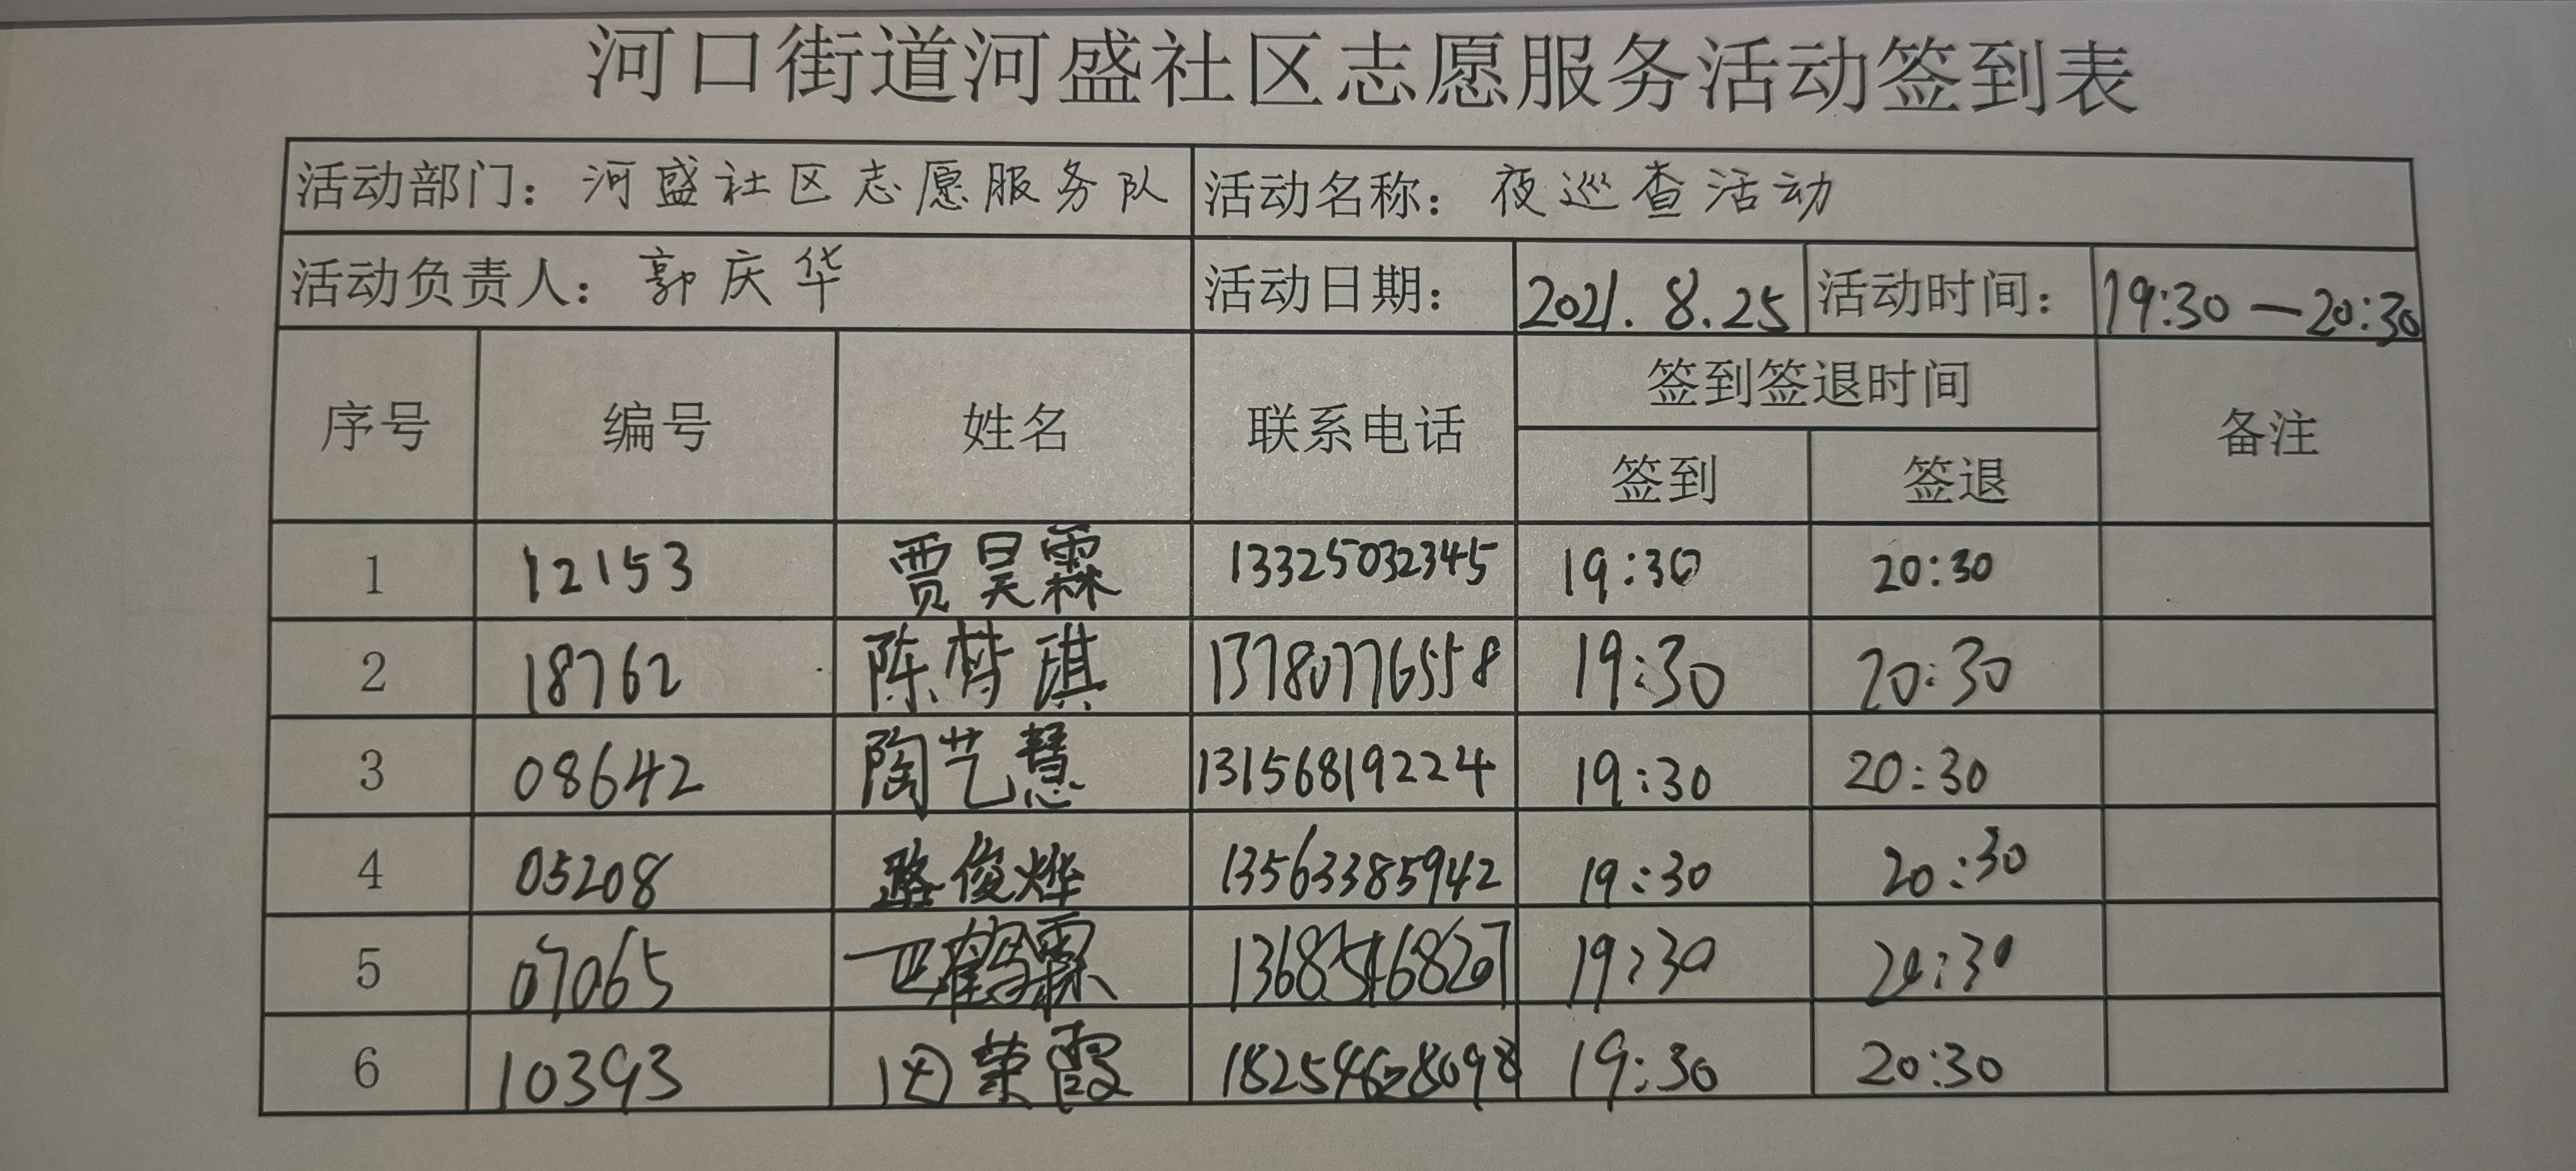 河口街道河盛社区志愿服务活动签到表
活动部门：河盛社区志愿服务队 活动名称：夜巡查活动
活动负责人：郭庆华 活动日期：2021.8.25 活动时间：19:30—20:30
序号 编号 姓名 联系电话 签到签退时间 备注
签到 签退
1 12153 贾昊霖 13325032345 19:30 20:30
2 18762 陈梦琪 13780776558 19:30 20:30
3 08642 陶艺慧 13156819224 19:30 20:30
4 05208 路俊烨 13563385942 19:30 20:30
5 07065 19:30 20:30
6 10393 田荣霞 18254628098 19:30 20:30